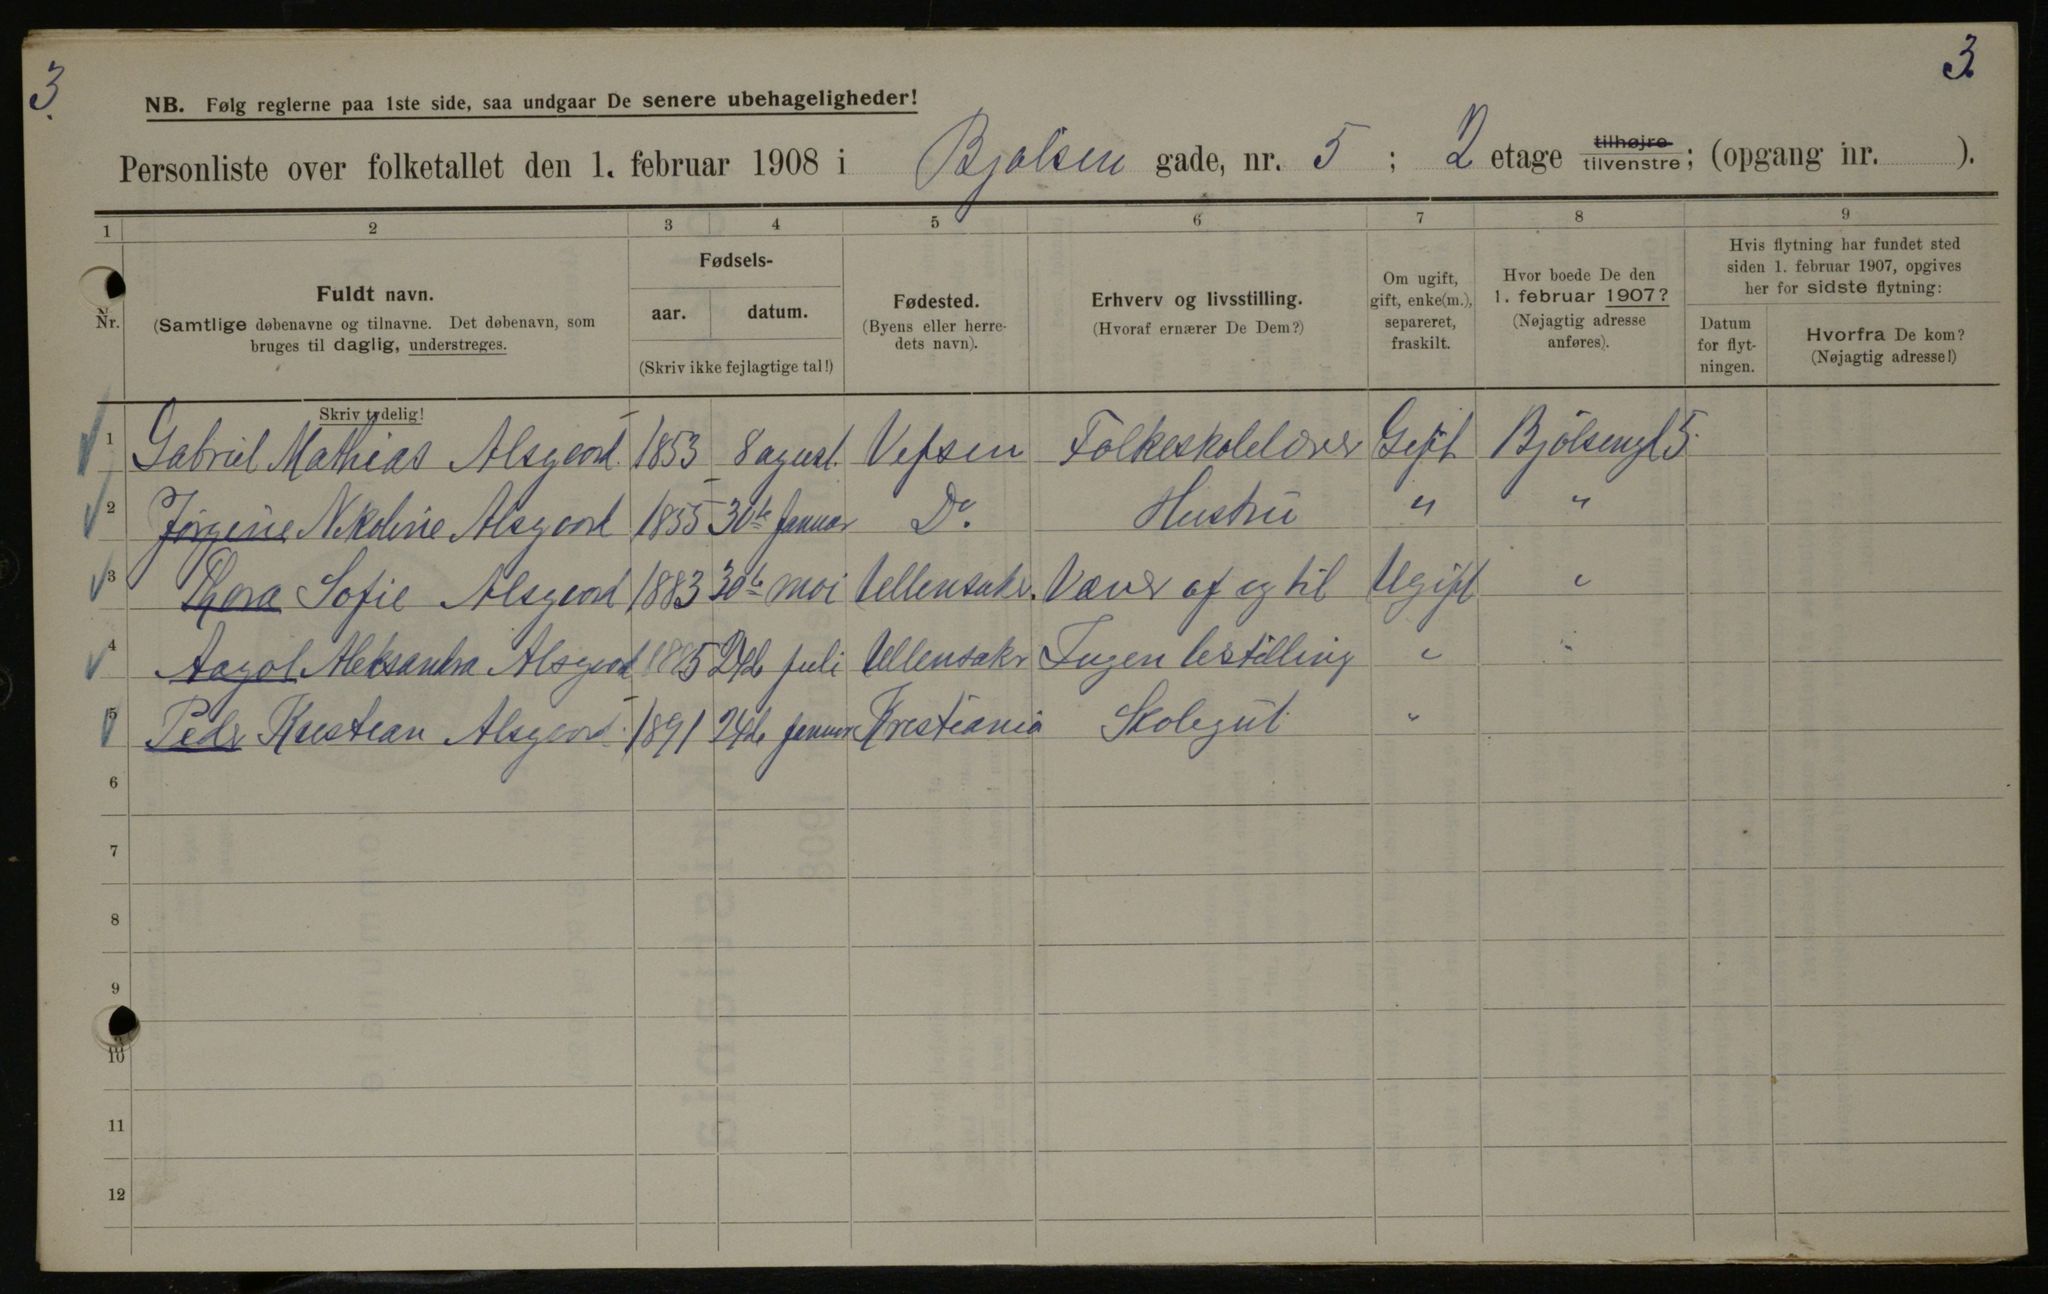 3.
3.
NB. Følg reglerne paa 1ste side, saa undgaar De senere ubehageligheder!
Personliste over folketallet den 1. februar 1908 i Bjølsen gade, nr. 5 ; 2 etage tilhøjre tilvenstre ; (opgang nr. ).
1 2 3 4 5 6 7 8 9
Nr.
Fuldt navn.
(Samtlige døbenavne og tilnavne. Det døbenavn, som
bruges til daglig, understreges.
Skriv tydelig!
Fødsels-
aar. datum.
(Skriv ikke fejlagtige tal!)
Fødested.
(Byens eller herre-
dets navn).
Erhverv og livsstilling.
(Hvoraf ernærer De Dem?)
Om ugift,
gift, enke(m.),
separeret,
fraskilt.
Hvor boede De den
1. februar 1907?
(Nøjagtig adresse
anføres).
Hvis flytning har fundet sted
siden 1. februar 1907, opgives
her for sidste flytning:
Datum
for flyt-
ningen.
Hvorfra De kom?
(Nøjagtig adresse!)
1 Gabriel Mathias Alsgaord. 1853 8 agust. Vefsen Folkeskolelærer Gift Bjölsengt 5.
2 Jörgine Nikoline Alsgaord 1855 30te Januar Do. Hustru " "
3 Thora Sofie Alsgaord 1883 30te mai Ullensakr. Væver af og til Ugift "
4 Aagot Aleksandra Alsgaord 1885 24de Juli Ullensakr Ingen bestilling " "
5 Peder Kristian Alsgaord. 1891 24de Januar Kristiania Skolegut "
6
7
8
9
10
11
12